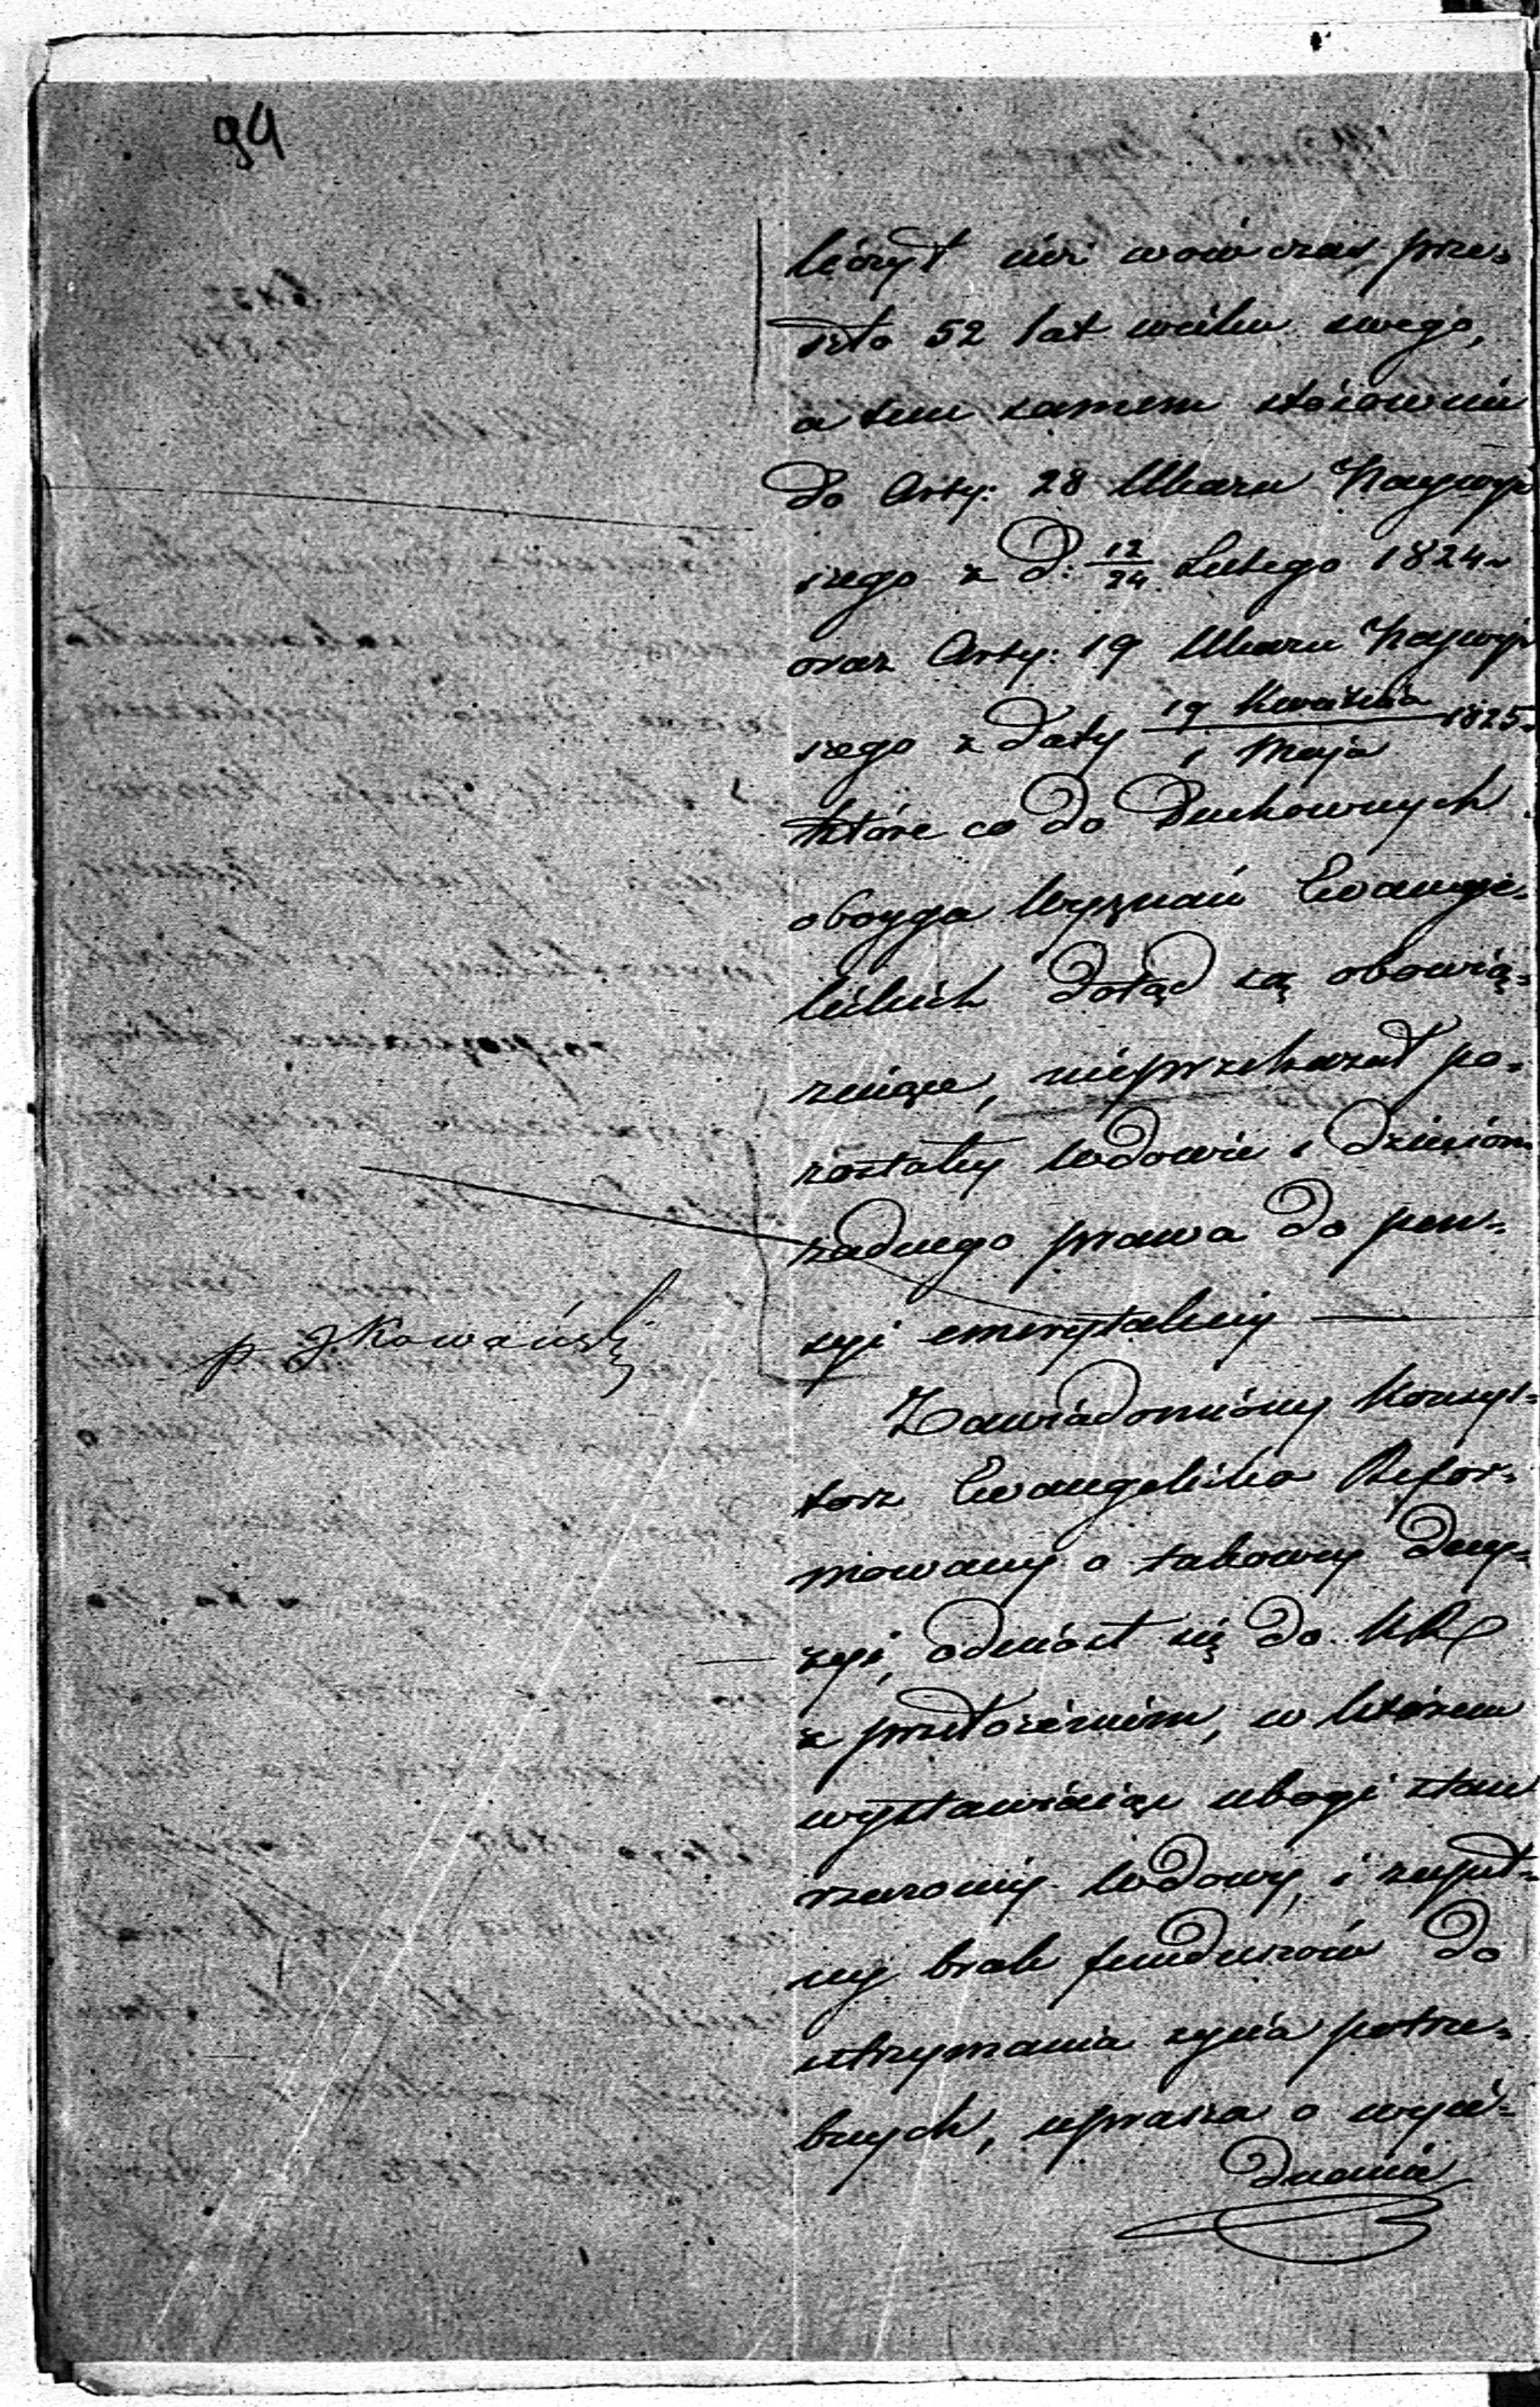 94
liczył już wówczas prze-
szło 52 lat wieku swego,
a tem samem stósownie
do Arty: 28 Ukazu Naywyż
szego z d: 12/24 Lutego 1824 r
oraz Arty: 19 Ukazu Naywyż
szego z daty 19 Kwietnia / 1 Maja 1825.
które co do Duchownych
oboyga Wyznań Ewangie-
lickich dotąd są obowią-
zuiące, nieprzekazał po-
zostałey wdowie i dzieciom
żadnego prawa do pen-
syi emerytalney
p J. Kowański
Zawiadomiony Konsys-
torz Ewangelicko Refor-
mowany o takowey decy-
zyi, odniósł się do KR
z przełożeniem, w którem
wystawiaiąc ubogi stan
rzeczoney wdowy, i zupeł-
ny brak funduszów do
utrzymania życia potrze-
bnych, uprasza o wyie-
dnanie